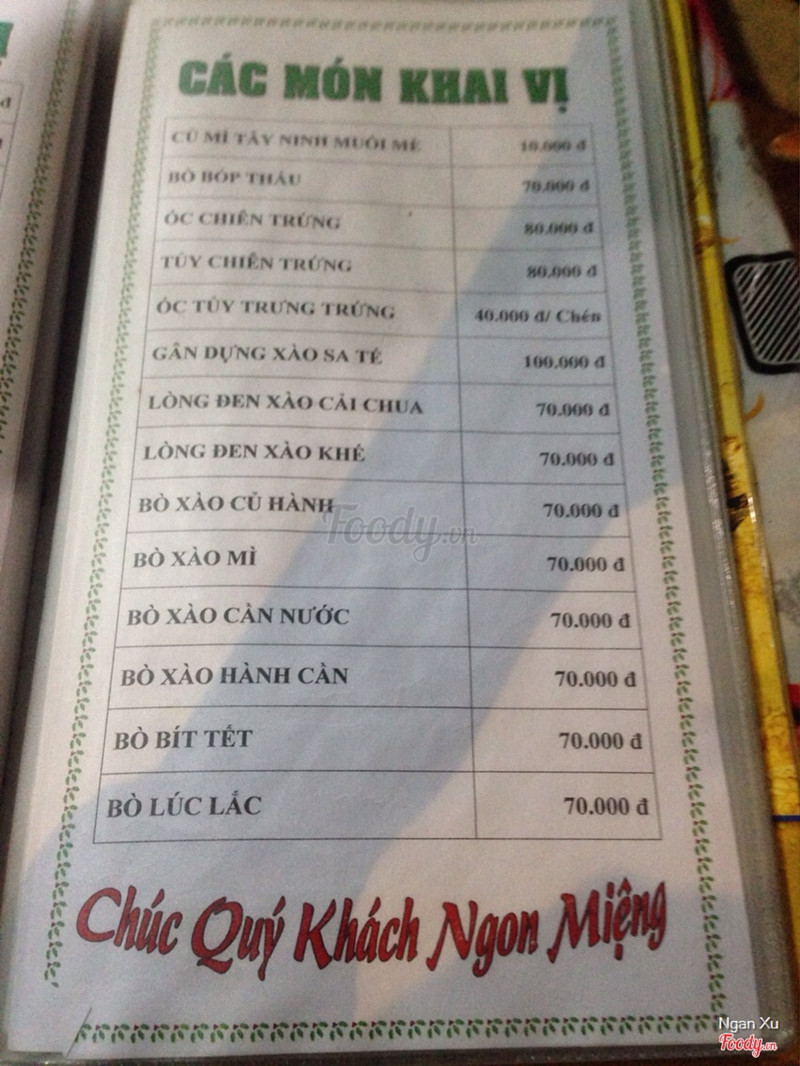 CÁC MÓN KHAI VỊ
CỦ MÌ TÂY NINH MUỐI MÈ 10.000 đ
BÒ BÓP THẤU 70.000 đ
ÓC CHIÊN TRỨNG 80.000 đ
TỦY CHIÊN TRỨNG 80.000 đ
ÓC TỦY TRƯNG TRỨNG 40.000 đ/ Chén
GÂN DỰNG XÀO SA TẾ 100.000 đ
LÒNG ĐEN XÀO CẢI CHUA 70.000 đ
LÒNG ĐEN XÀO KHÉ 70.000 đ
BÒ XÀO CỦ HÀNH 70.000 đ
BÒ XÀO MÌ 70.000 đ
BÒ XÀO CẦN NƯỚC 70.000 đ
BÒ XÀO HÀNH CẦN 70.000 đ
BÒ BÍT TẾT 70.000 đ
BÒ LÚC LẮC 70.000 đ
Chúc Quý Khách Ngon Miệng
Foody.vn
Ngan Xu
Foody.vn